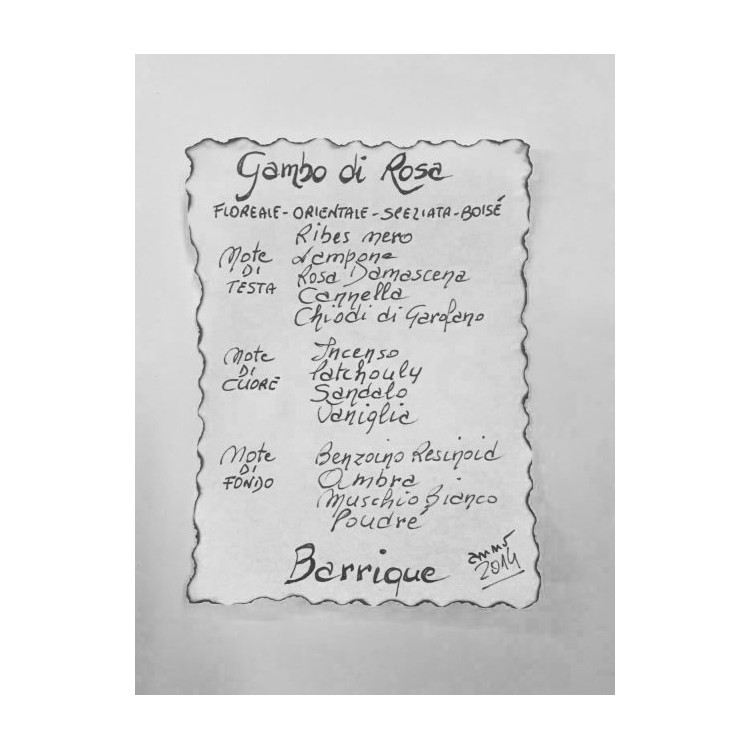 Gambo di Rosa
FLOREALE - ORIENTALE - SPEZIATA - BOISÉ
Ribes nero
Note Lampone
DI Rosa Damascena
TESTA Cannella
Chiodi di Garofano
Note Incenso
DI Patchouly
CUORE Sandalo
Vaniglia
Note Benzoino Resinoid
DI Ambra
FONDO Muschio Bianco
Poudré
Barrique
anno
2014